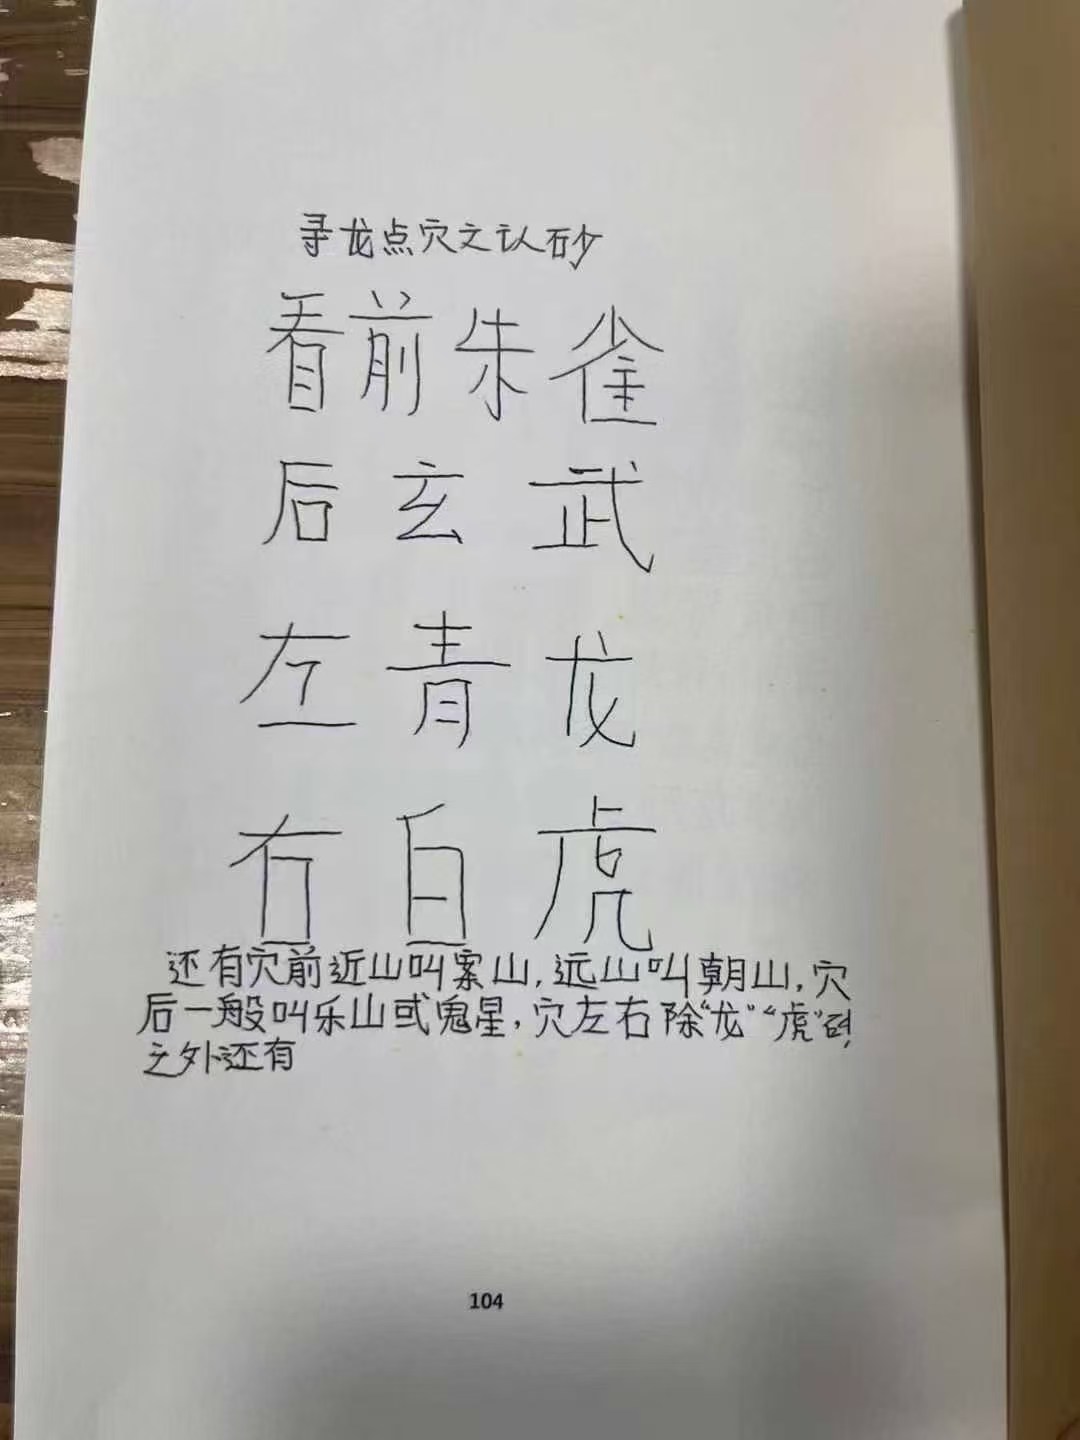 寻龙点穴之认砂
看前朱雀
后玄武
左青龙
右白虎
还有穴前近山叫案山,远山叫朝山,穴
后一般叫乐山或鬼星,穴左右除“龙”“虎”砂,
之外还有
104